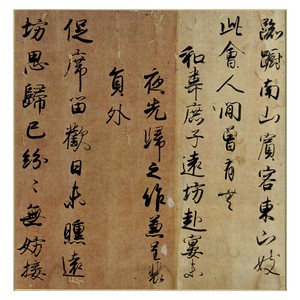 踟蹰南山賓客東山妓
此會人間曾有無
和裴庶子遠坊赴宴未
夜先歸之作兼呈裴
員外
促席留歡日未曛遠
坊思歸已紛〻無妨按